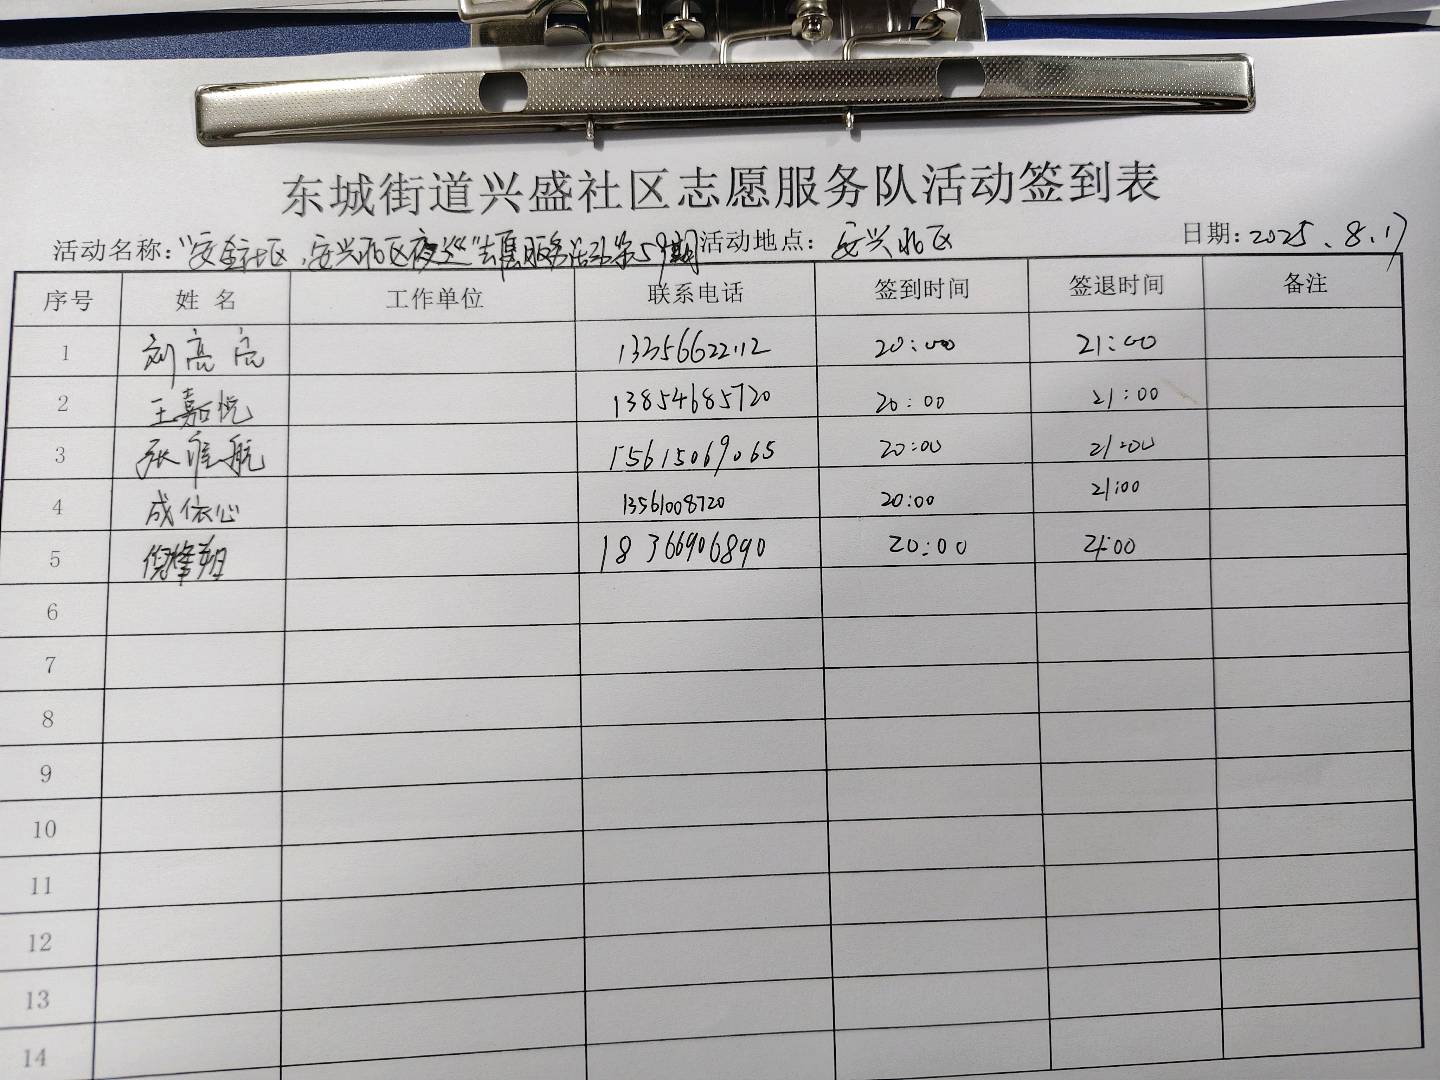 东城街道兴盛社区志愿服务队活动签到表
活动名称：“安全社区，安兴北区夜巡”志愿服务活动第59期 活动地点：安兴北区 日期：2025.8.17
序号 姓名 工作单位 联系电话 签到时间 签退时间 备注
1 刘亮亮 20:00 21:00
2 王嘉悦 13854685720 20:00 21:00
3 张维航 15615069065 20:00 21:00
4 成依心 13561008720 20:00 21:00
5 倪烽翔 18366906890 20:00 21:00
6
7
8
9
10
11
12
13
14